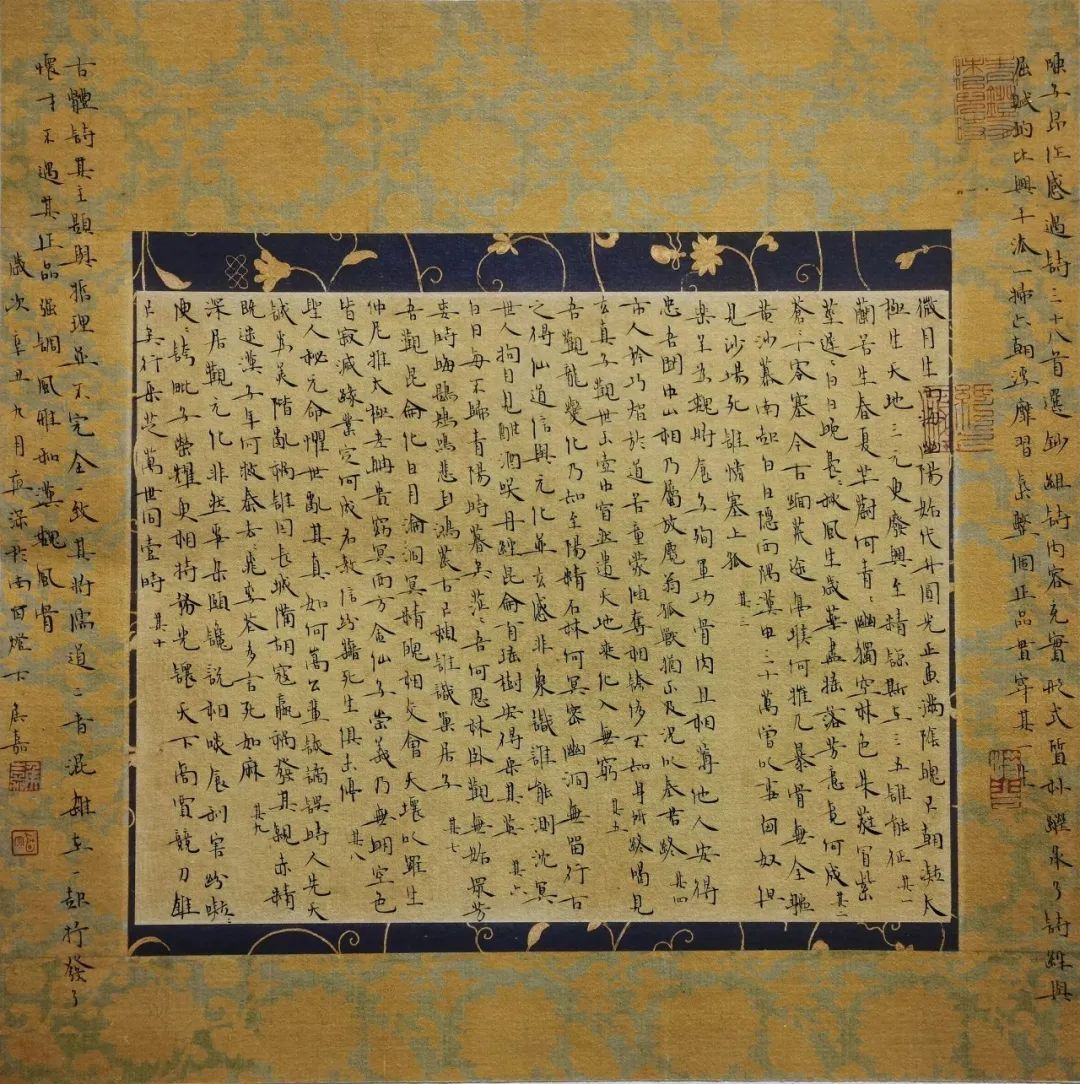 陳子昂作感遇詩三十八首選鈔組詩內容充實形式質朴繼承了詩經與
屈賦的比興手法一掃六朝浮靡習氣整個正品貫穿其一生
微月生西海幽陽始代升圓光正東滿陰魄已朝凝太
極生天地三元更廢興至精諒斯在三五誰能征其一
蘭若生春夏芊蔚何青〻幽獨空林色朱蕤冒紫
莖遲〻白日晚嫋〻秋風生歲華盡搖落芳意竟何成其二
蒼〻丁零塞今古緬荒途亭堠何摧兀暴骨無全軀
黃沙幕南起白日隱西隅漢甲三十萬曾以事匈奴但
見沙場死誰憐塞上孤 其三
樂羊為魏將食子殉軍功骨肉且相薄他人安得
忠吾聞中山相乃屬放麑翁孤獸猶不忍況以奉君終 其四
市人矜巧智於道若童蒙傾奪相誇侈不知身所終曷見
玄真子觀世玉壺中窅然遺天地乘化入無窮 其五
吾觀龍變化乃知至陽精石林何冥密幽洞無留行古
之得仙道信與元化並玄感非象識誰能測沈冥
世人拘目見酣酒笑丹經昆侖有瑤樹安得采其英 其六
白日每不歸青陽時暮矣茫〻吾何思林臥觀無始眾芳
委時晦鶗鴂鳴悲耳鴻荒古已頹誰識巢居子 其七
吾觀昆侖化日月淪洞冥精魄相交會天壤以羅生
仲尼推太極老聃貴窈冥西方金仙子崇義乃無明空色
皆寂滅緣業定何成名教信紛藉死生俱未停 其八
聖人秘元命懼世亂其真如何嵩公輩詼譎誤時人先天
誠為美階亂禍誰因長城備胡寇嬴禍發其親赤精
既迷漢子年何救秦去〻桃李花多言死如麻 其九
深居觀元化悱然爭朵頤讒說相啖食利害紛㘈〻
便〻誇毗子榮耀更相持務光讓天下商賈競刀錐
已矣行采芝萬世同壹時 其十
古體詩其主題與哲理並不完全一致其將儒道二者混雜在一起抒發了
懷才不遇其正品強調風雅和漢魏風骨
歲次辛丑九月夜深於南窗燈下